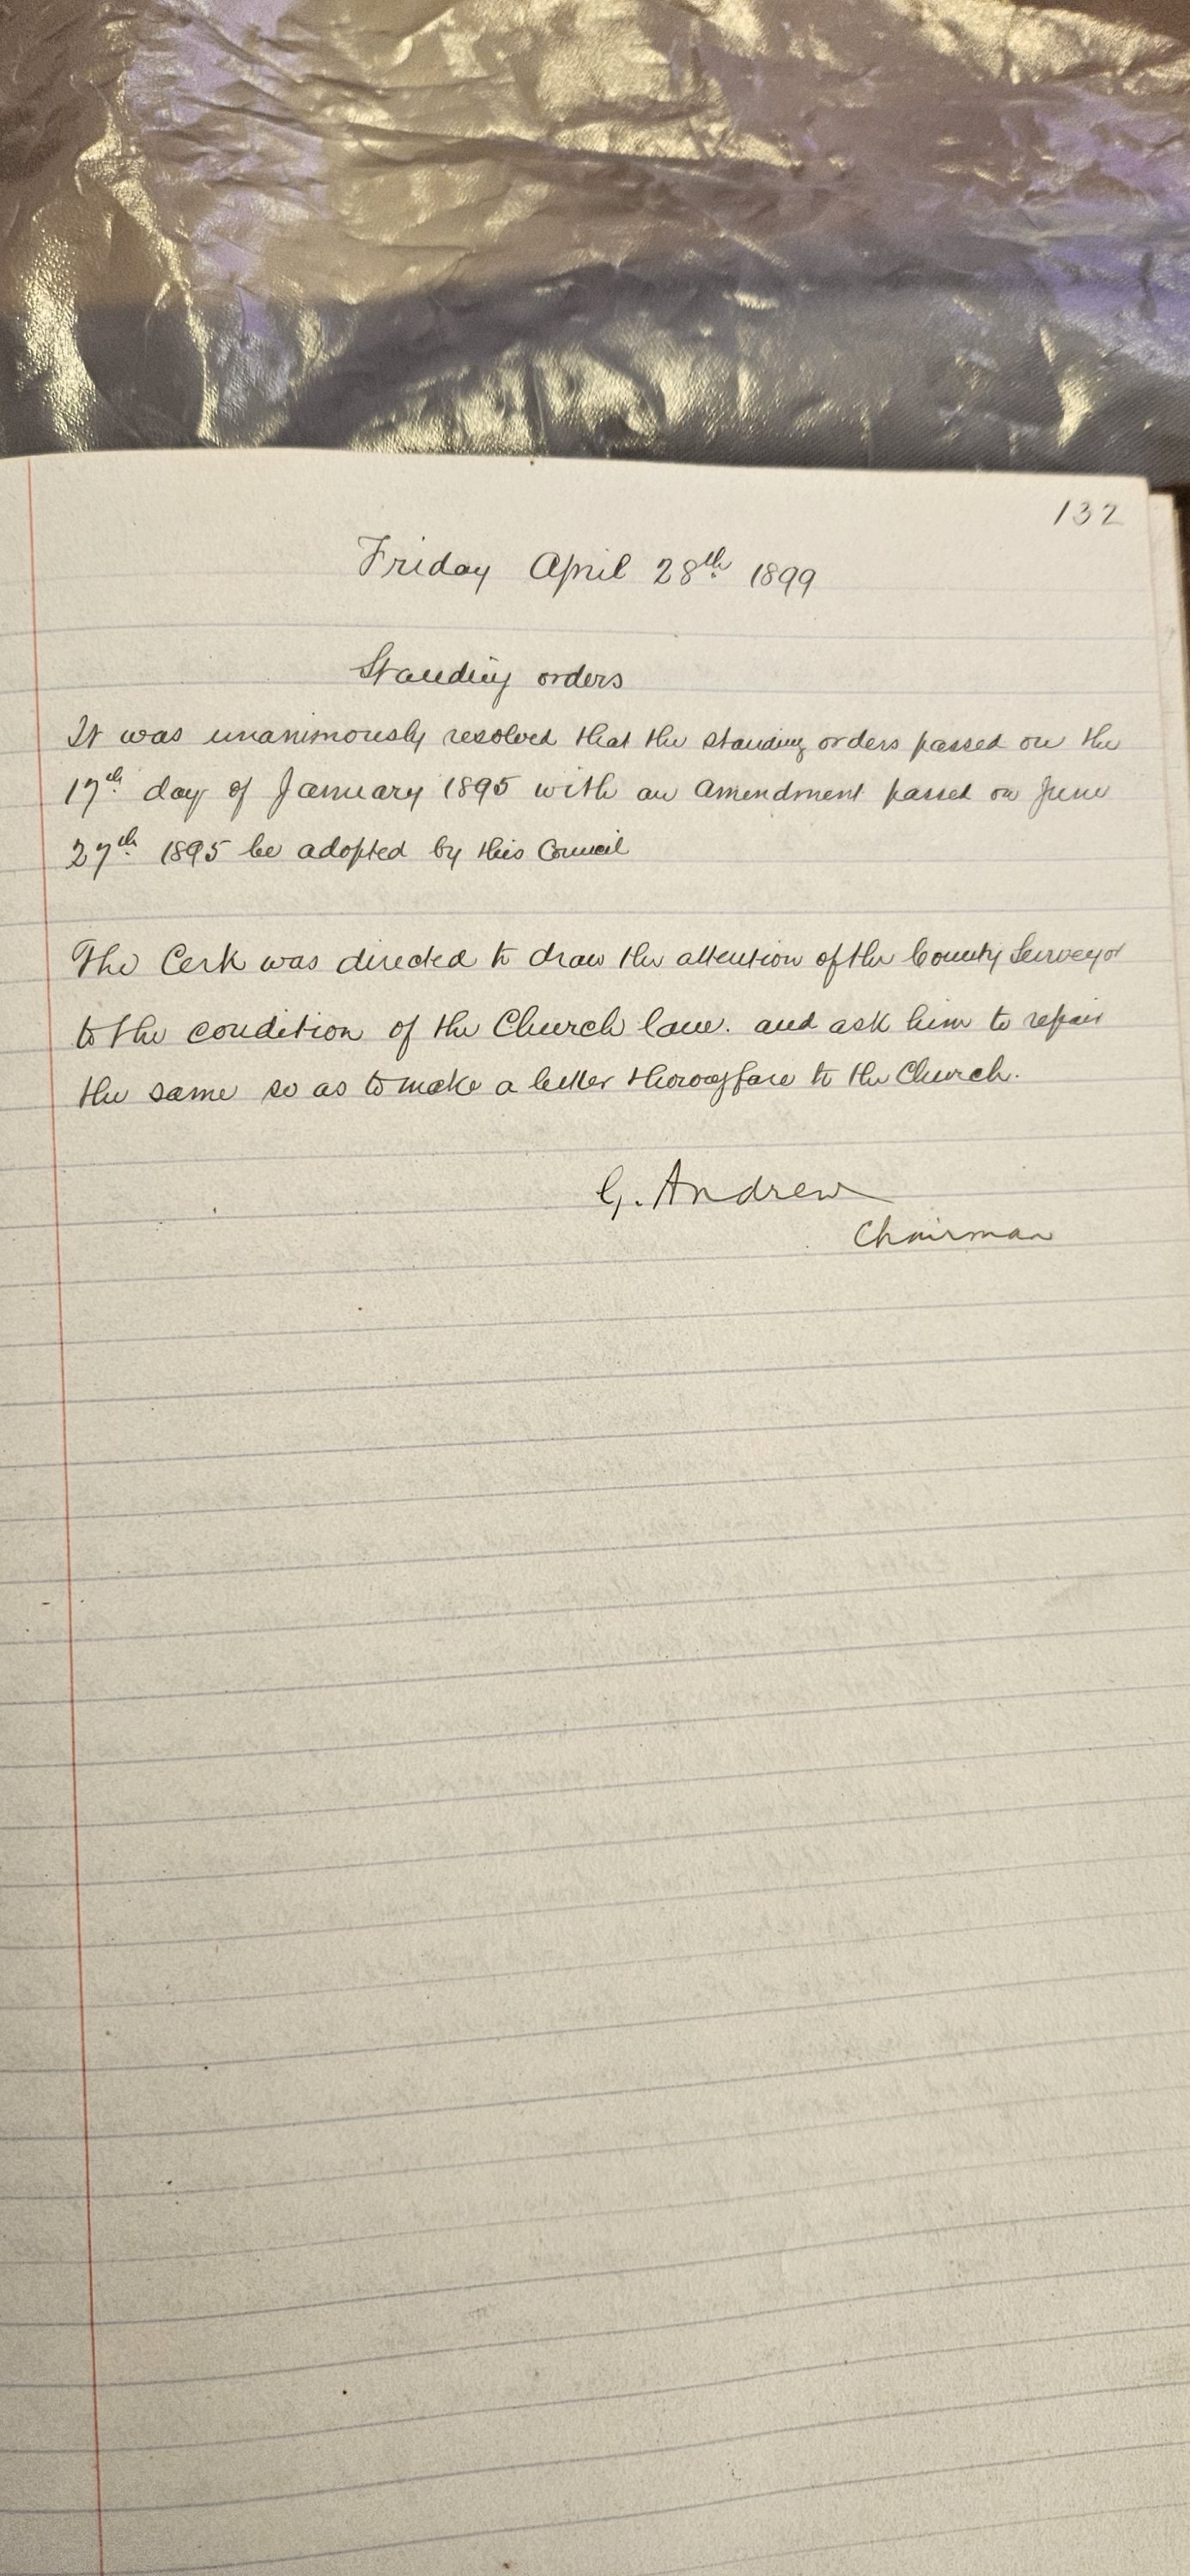 132
Friday April 28th 1899
Standing orders
It was unanimously resolved that the standing orders passed on the
17th day of January 1895 with an Amendment passed on June
27th 1895 be adopted by this Council
The Cerk was directed to draw the attention of the County Surveyor
to the condition of the Church lane. and ask him to repair
the same so as to make a better thorougfare to the Church.
G. Andrew
Chairman